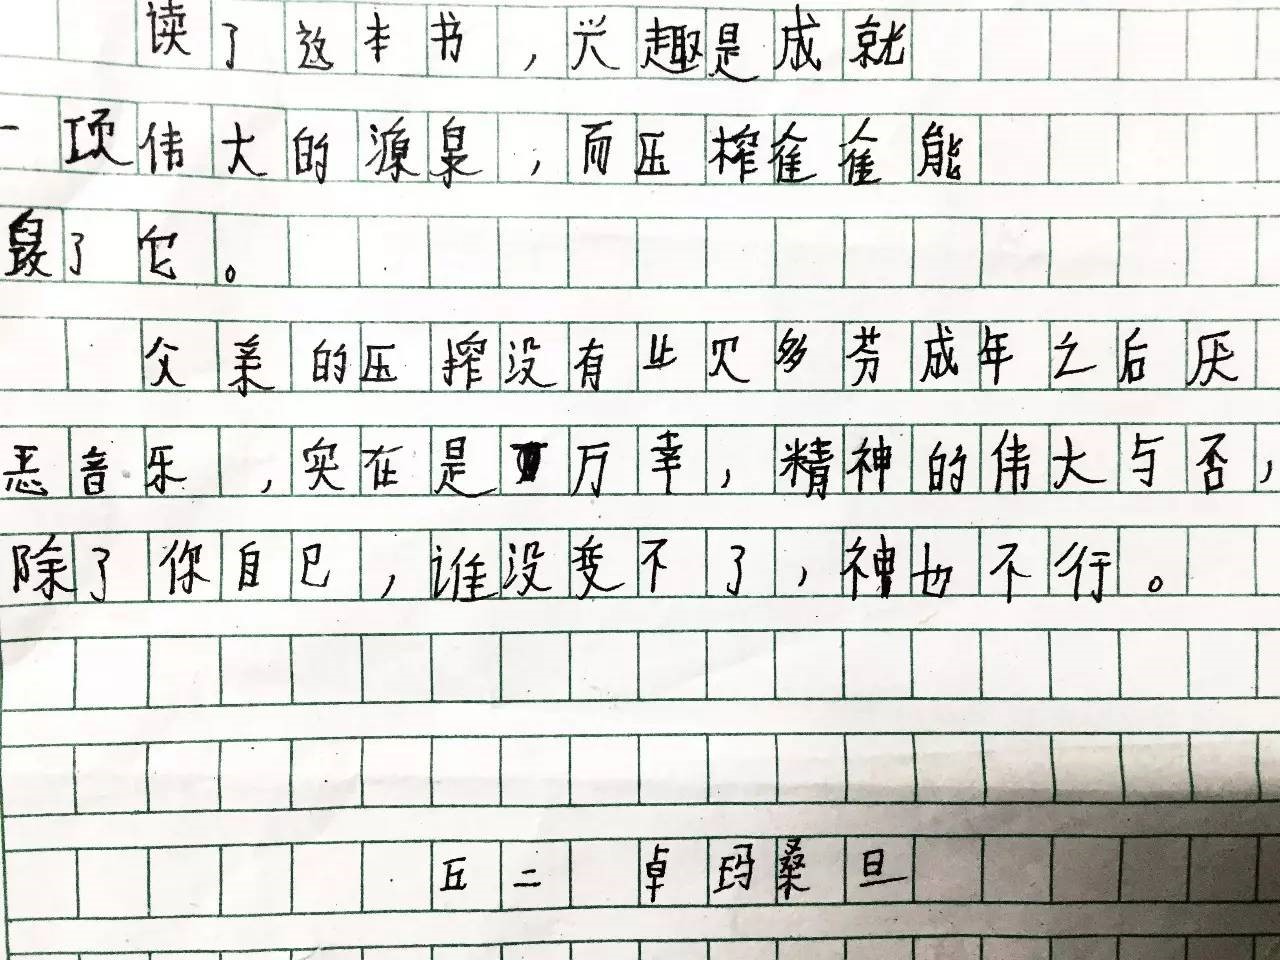 读了这本书，兴趣是成就
一项伟大的源泉，而压榨雀雀能
毁了它。
父亲的压榨没有让贝多芬成年之后厌
恶音乐，实在是万幸，精神的伟大与否，
除了你自己，谁没变不了，神也不行。
五二 卓玛桑旦